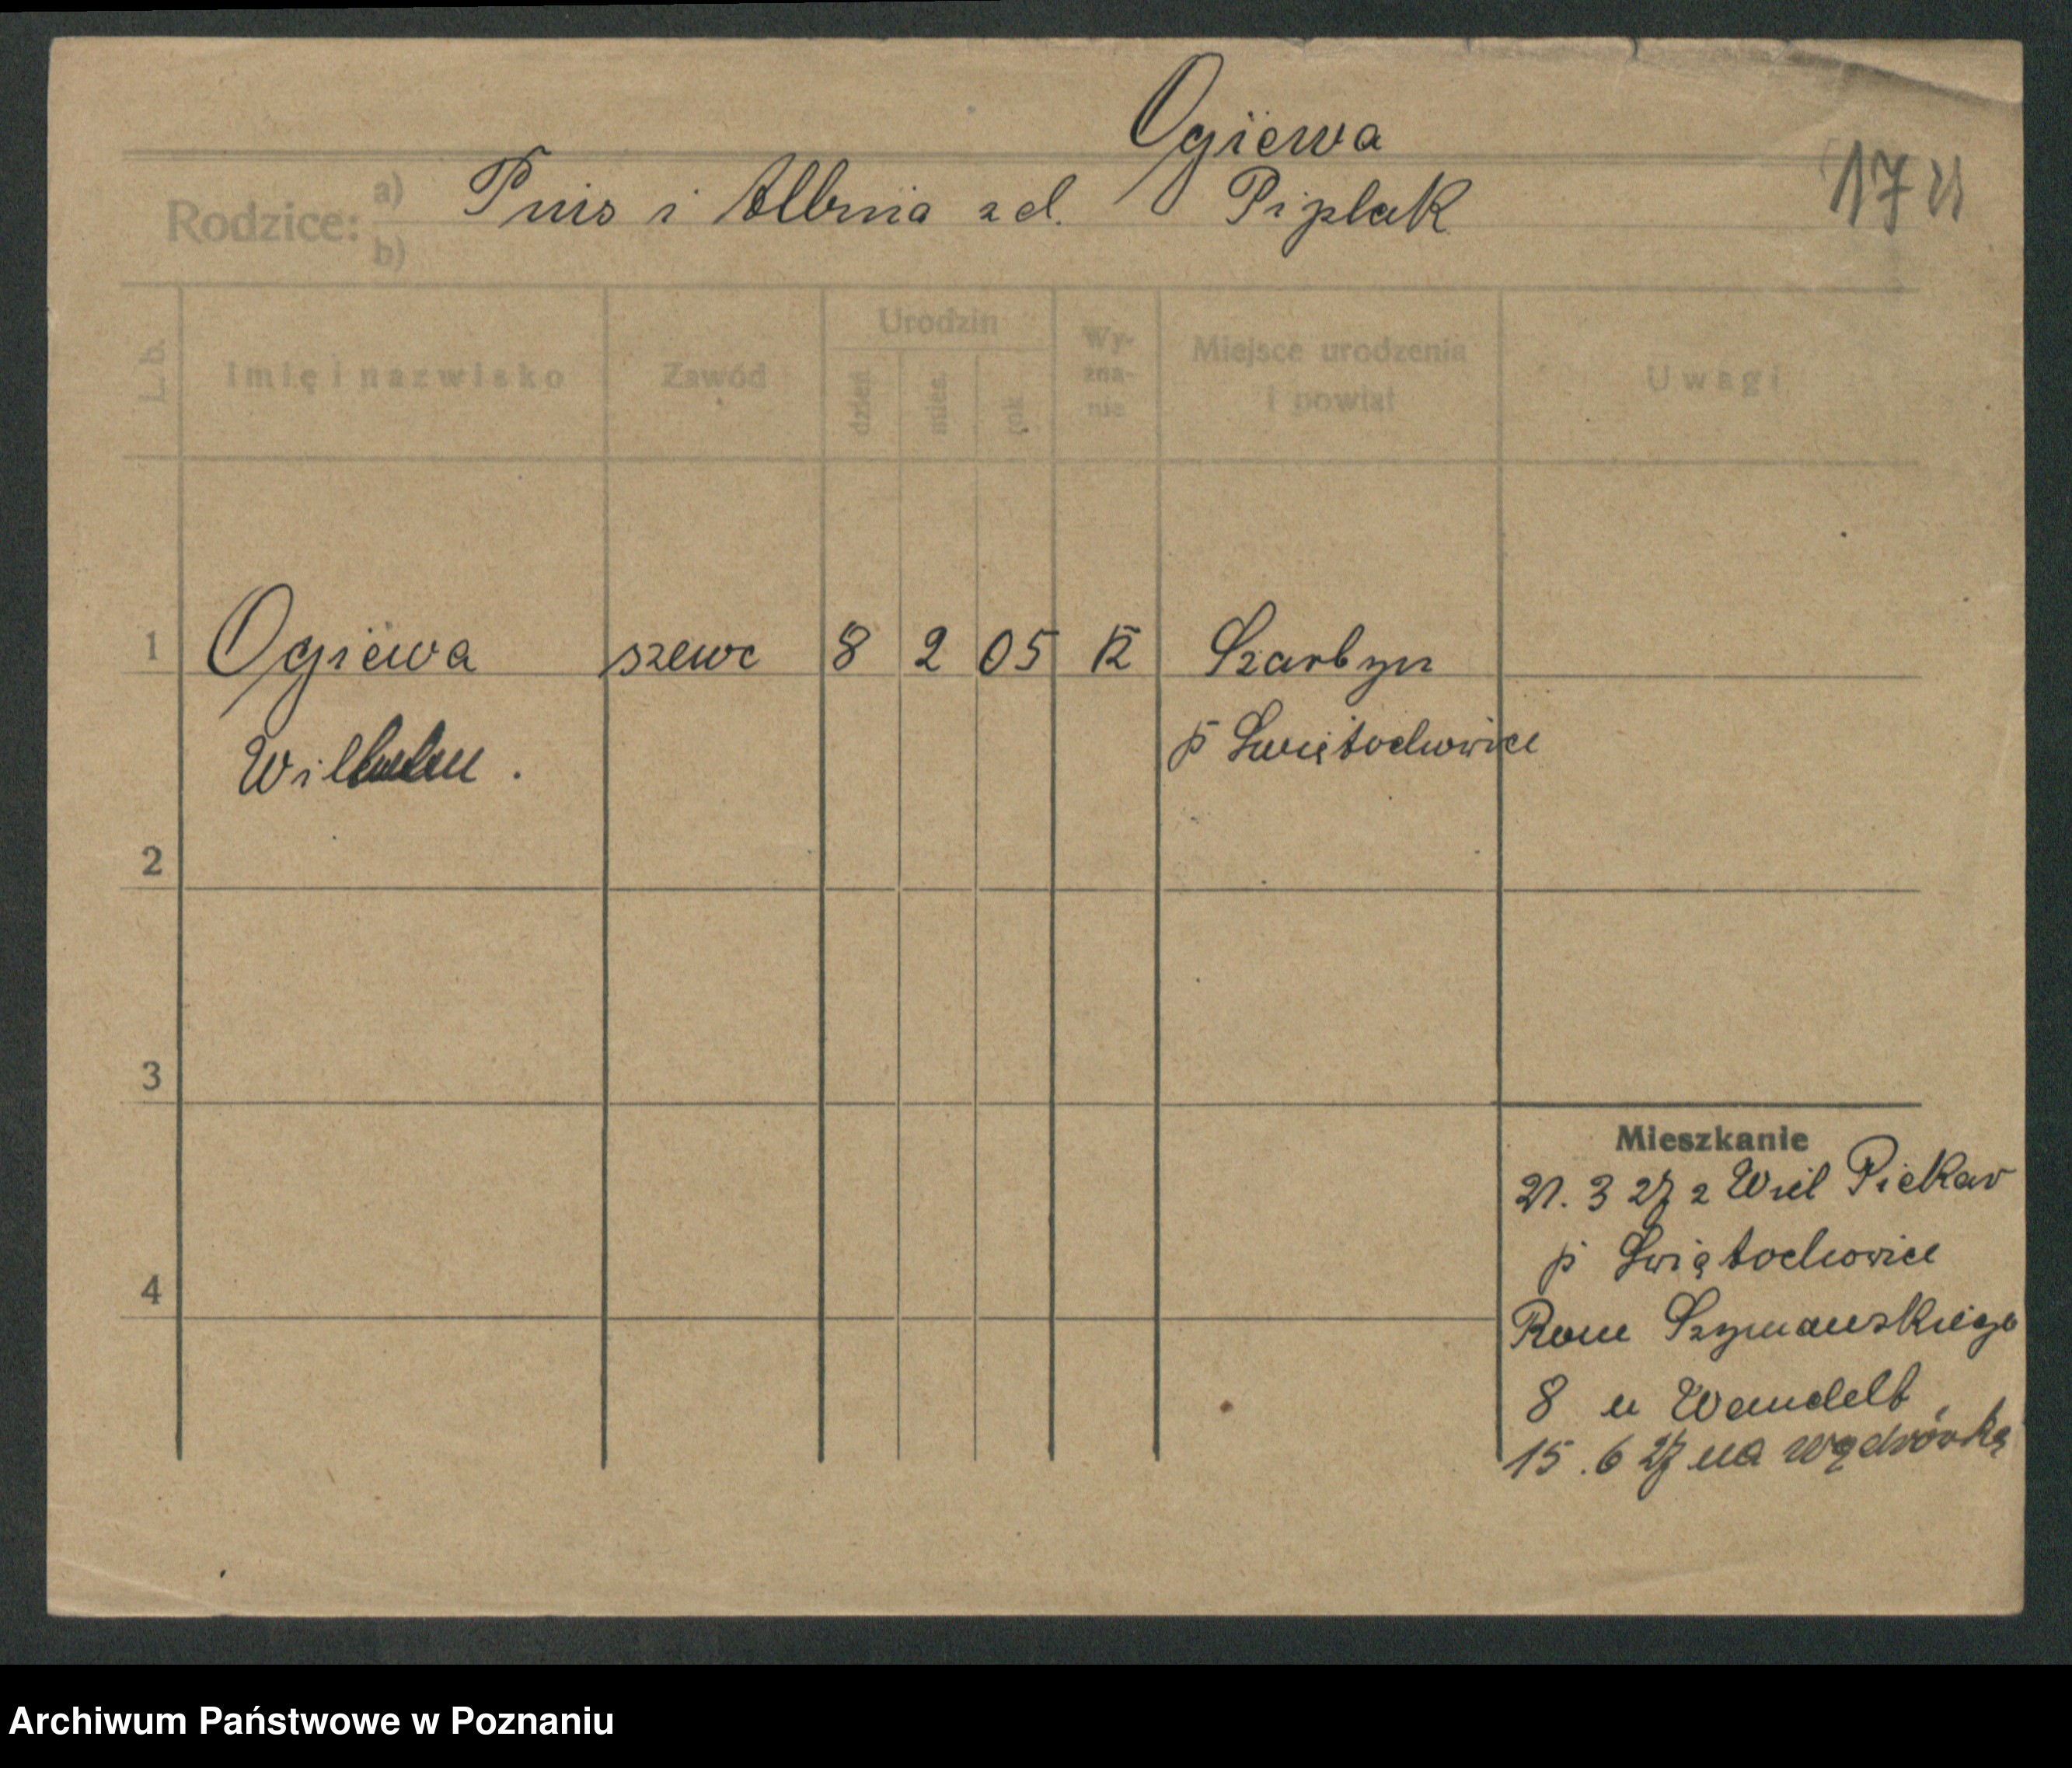 Ogiewa
17 21
Rodzice: a) Pius i Albina zd. Piplak
b)
L. b.
Imię i nazwisko
Zawód
Urodzin
dzień
mies.
rok
Wy-
zna-
nie
Miejsce urodzenia
i powiat
Uwagi
1 Ogiewa szewc 8 2 05 K Szarbyn
Wilhelm. p Świętochowice
2
3
4
Mieszkanie
21. 3 27 z Wiel Piekar
p Świątochowice
Rom Szymańskiego
8 u Wandelt
15. 6 27 na wędrówkę
Archiwum Państwowe w Poznaniu